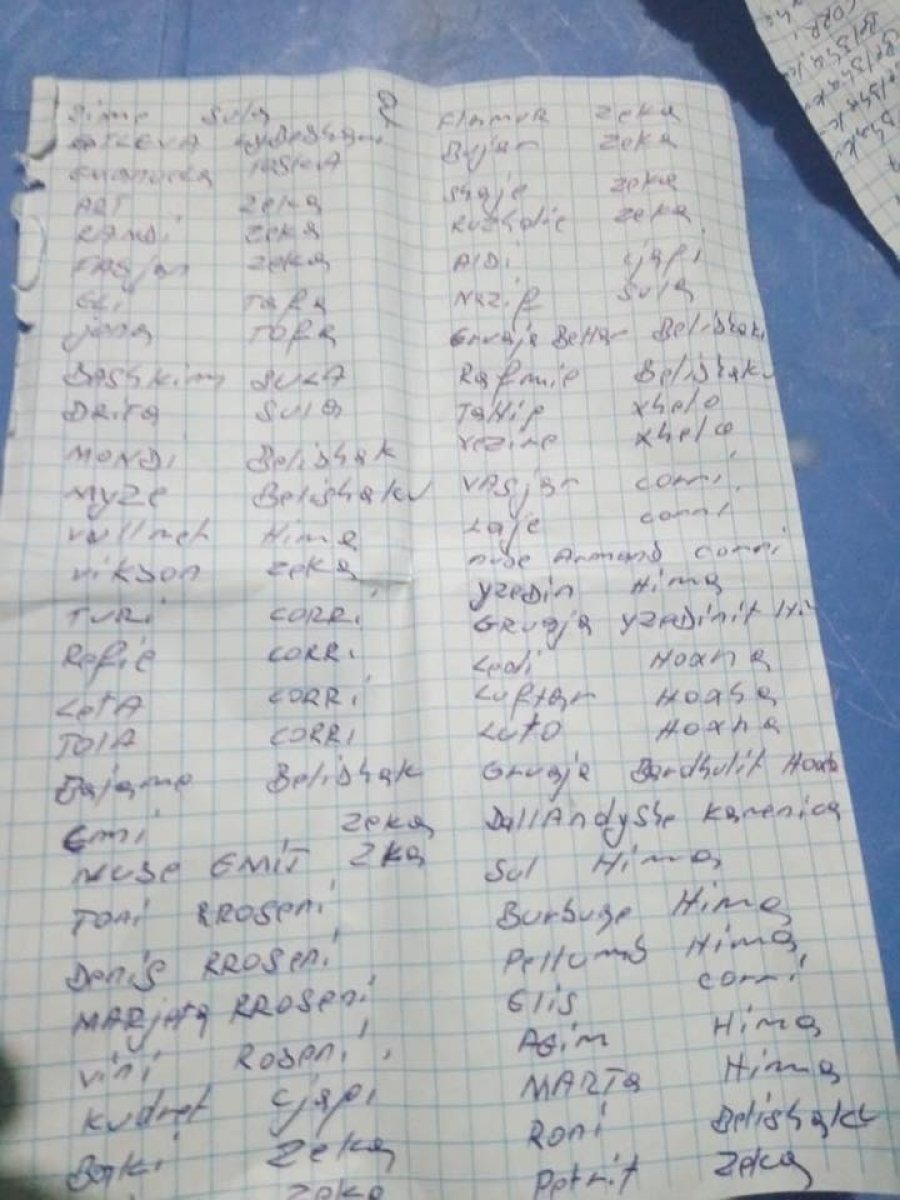 Sula
2
ART Zeka
RAMDi Zeka
FAsjan Zeka
Eli Tafa
jona Tofa
Bashkim SULA
DRiTa Sula
MONDi Belishak
Myze Belishaku
vullnet Hima
vikson Zeka
TuRi CORRi
Refie CORRi
LetA CORRi
TOLA CORRi
Bajame Belishak
Emi Zeka
NUSe EMiT Zka
Toni RROSeni
Denis RROSeni
MARjeta RROSeni
vini ROSeni
kudret Cjapi
Zeka
Zeka
Flamur Zeka
Bujar Zeka
Shaje Zeka
Zeka
AlDi Cjapi
Nazif Sula
Belishaku
Rafmie Belishaku
TaHip Xhelo
Xhelo
VAsjan Corri
Laje Corri
nuse Armand Corri
YzeDin Hima
GRuaja YzeDinit Hi
Ledi Hoxha
Luftar Hoxha
Luto Hoxha
Gruaja Bardhulit Hoxh
DallAndyshe Kamenica
Sul Hima
Burbuqe Hima
Pellumb Hima
Elis Corri
Agim Hima
MARTa Hima
Roni Belishaku
Petrit Zeka